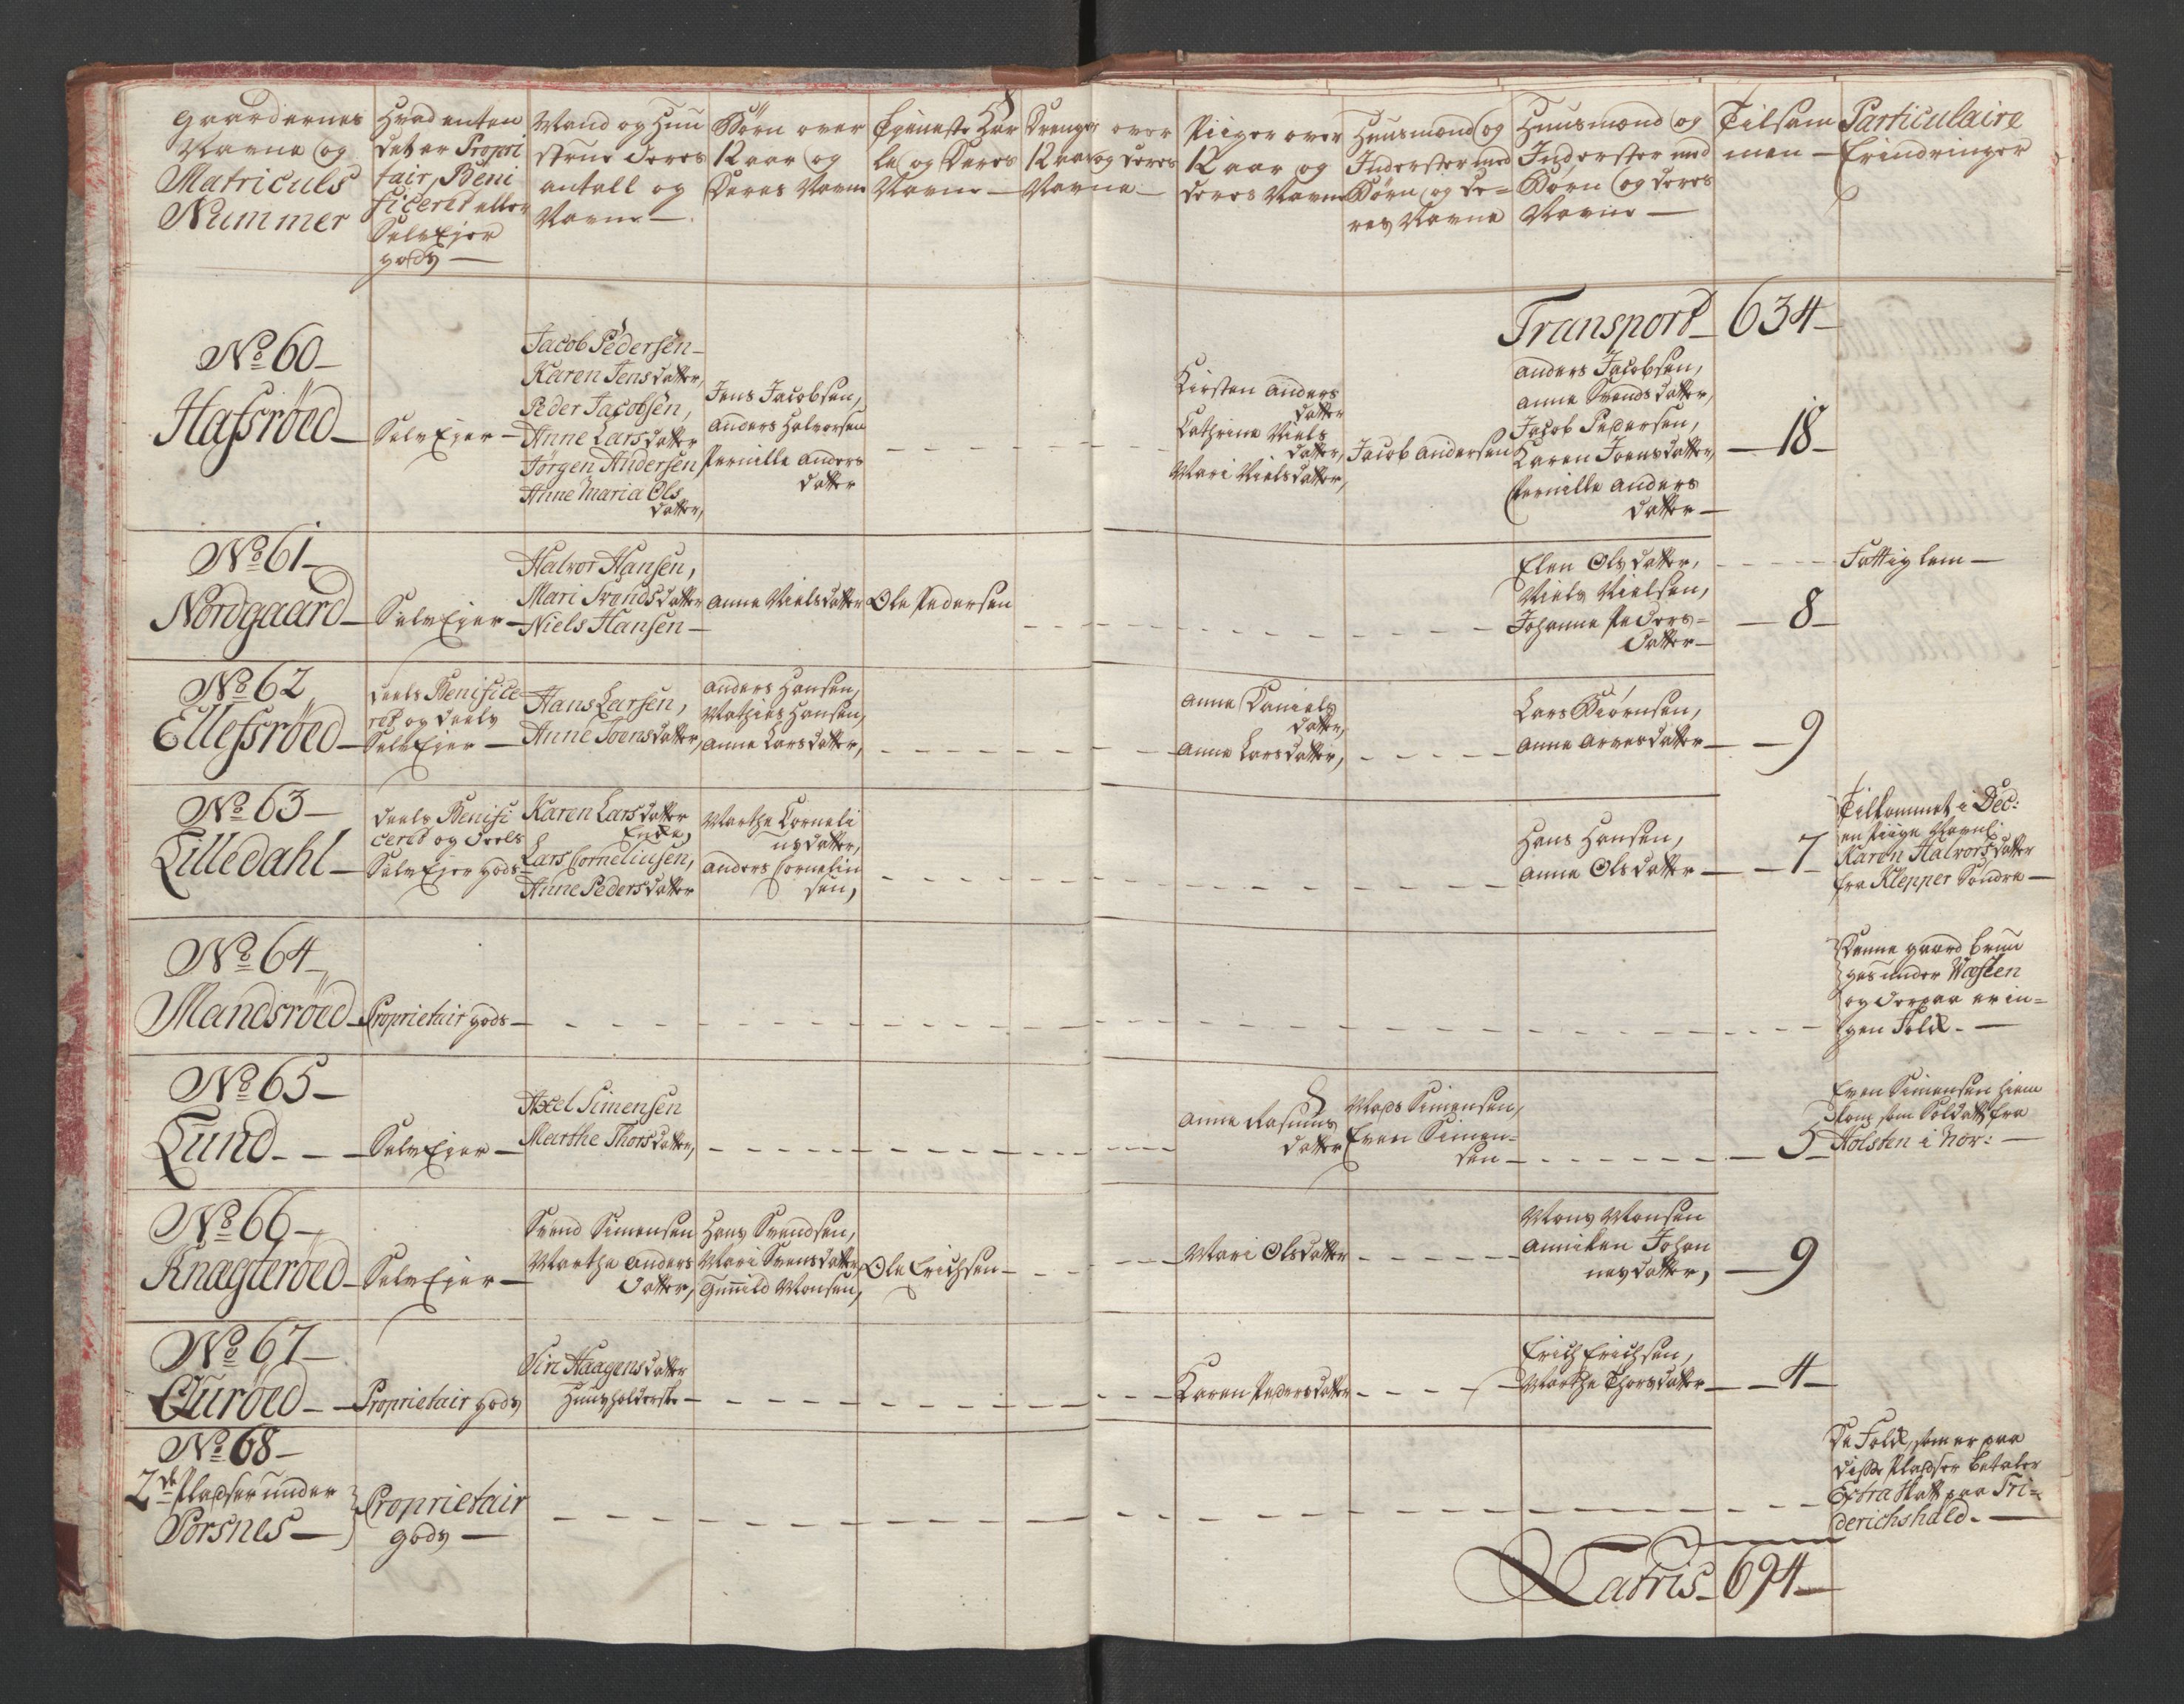 Gaardernes
Navne og
Matriculs
Nummer
Hvad enten
det er Propri
tair, Beni
ficeret eller
SelvEjer
gods —
Mand og Huu
strue deres
antall og
Navne —
Børn over
12 aar og
deres Navne
Tjeneste Kar
le og deres
Navne —
Drenge over
12 aar og deres
Navne —
Piiger over
12 aar og
deres Navne
Huusmænd og
Inderster med
Børn og de=
res Navne
Huusmænd og
Inderster med
Børn og deres
Navne —
Tilsam
men —
Particulaire
Erindringer
Transport — 634 —
No 60 —
Hafsrøed —
SelvEjer —
Jacob Pedersen —
Karen Jensdatter,
Peder Jacobsen,
Anne Larsdatter
Jørgen Andersen,
Anne Maria Ols
datter,
Jens Jacobsen,
Anders Halvorsen
Pernille Anders
datter
Kirsten Anders
datter
Cathrine Niels
datter,
Mari Nielsdatter,
Jacob Andersen
Anders Jacobsen,
Anne Svendsdatter,
Jacob Pedersen,
Karen Joensdatter,
Pernille Anders
datter —
— 18 —
No 61 —
Nordgaard —
SelvEjer —
Halvor Hansen,
Mari Svendsdatter
Niels Hansen —
Anne Nielsdatter
Ole Pedersen
Elen Olsdatter,
Niels Nielsen,
Johanne Peders=
datter —
— 8 —
Fattig lem —
No 62
Ellefsrøed —
deels Benifice
ret og deels
SelvEjer —
Hans Larsen,
Anne Joensdatter,
Anders Hansen,
Mathias Hansen,
Anne Larsdatter,
Anne Daniels
datter,
Anne Larsdatter,
Lars Biørnsen,
Anne Arnesdatter —
— 9
No 63 —
Lilledahl —
deels Benifi
ceret og deels
SelvEjer gods —
Karen Larsdatter
Enke,
Lars Corneliusen,
Anne Pedersdatter
Marthe Corneli
usdatter,
Anders Corneliu
sen,
Hans Hansen,
Anne Olsdatter —
— 7 —
Tilkommet i Dec:
en Piige Navnl:
Karen Halvorsdatter
fra Klepper Søndre —
No 64 —
Mandsrøed —
Proprietair gods —
Denne gaard brua
ges under Wefsten
og derpaa er in=
gen Folk. —
No 65 —
Lund —
SelvEjer —
Axel Simensen
Marthe Thorsdatter,
Anne Rasmus
datter
Mads Simensen,
Even Simen=
sen —
— 5 —
Even Simensen hiem
kom som Soldatt fra
Holsten i Nov: —
No 66 —
Knagterøed —
SelvEjer —
Svend Simensen
Marthe Anders
datter,
Hans Svendsen,
Mari Svensdatter,
Gunild Monsen,
Ole Erichsen —
Mari Olsdatter
Mons Monsen
Anniken Johan
nesdatter,
— 9
No 67 —
Qurøed —
Proprietair gods
Siri Haagensdatter
Huusholderske —
Karen Pedersdatter
Erich Erichsen,
Marthe Thorsdatter —
— 4 —
No 68 —
2de Pladser under
Porsnes —
Proprietair
gods —
De Folk, som er paa
disse Pladser betaler
Extra Skatt paa Fri=
derichshald. —
Latris — 694 —